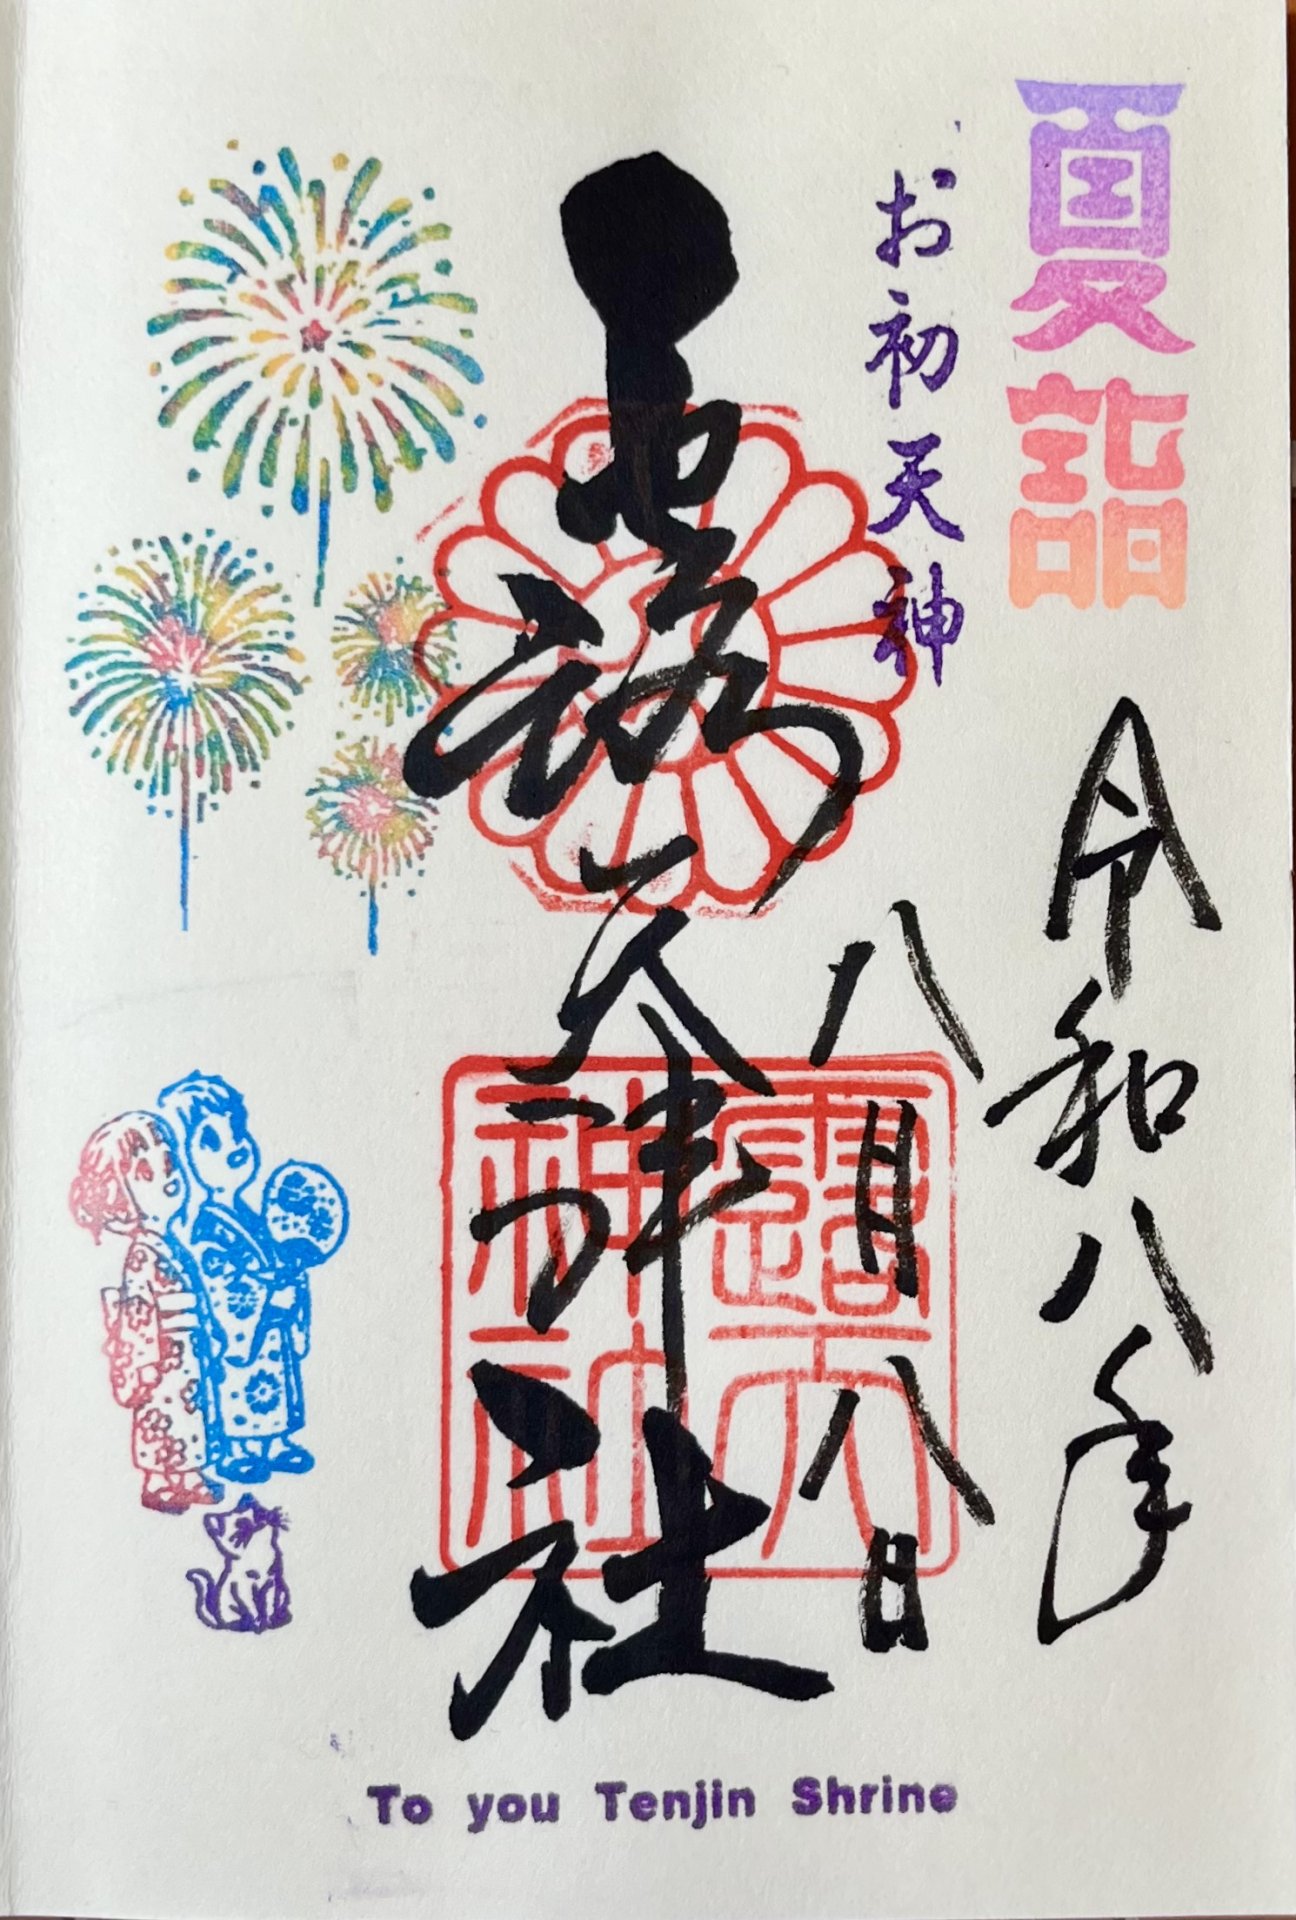 夏詣
お初天神
令和八年
八月八日
露天神社
露天
神社
To you Tenjin Shrine